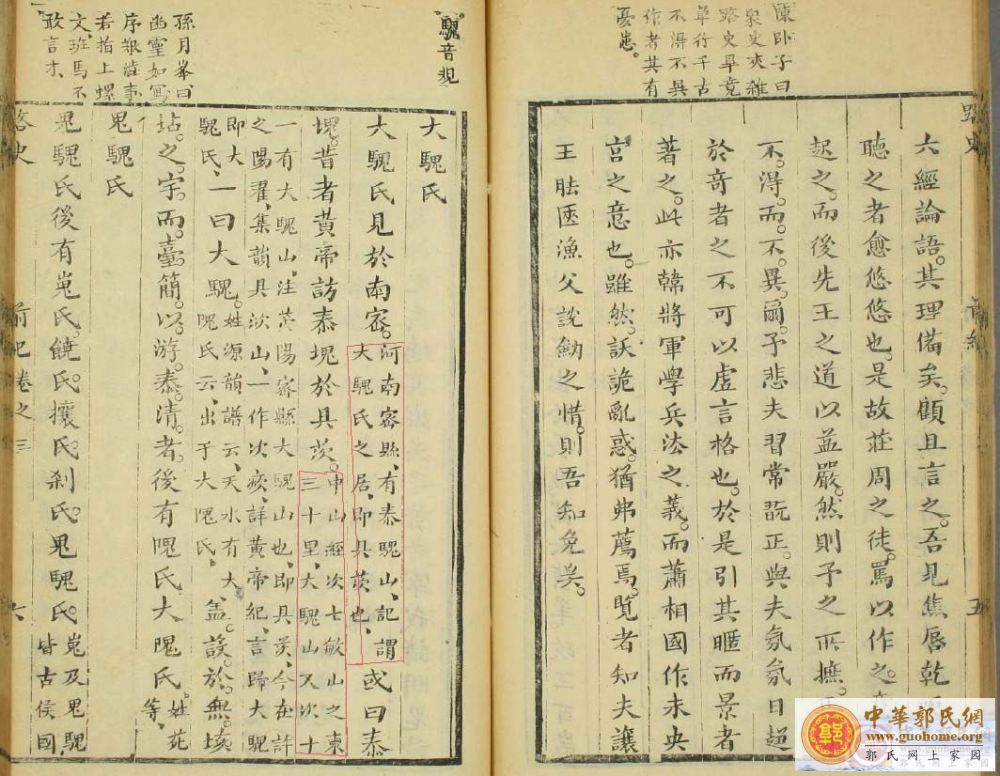 陳卧子曰
衆史夾雜
路史畢竟
單行千古
不得不異
作者其有
憂患。
路史
六經論語。其理備矣。顧且言之。吾見焦唇乾
聽之者愈悠悠也。是故莊周之徒。罵以作之。
起之。而後先王之道以益嚴。然則予之所撫。
不。得。而。不。異。爾。予悲夫習常翫正。與夫氛氛日趨
於竒者之不可以虚言格也。於是引其暱而景者
著之。此亦韓將軍學兵法之義。而蕭相國作未央
宫之意也。雖然。訞詭亂惑。猶弗薦焉。覽者知夫讓
王胠篋漁父説劒之情。則吾知免矣。
五
騩音規
孫月峯曰
幽靈如寫
序報澁事
若指上螺
文班馬不
敢言才
大騩氏
大騩氏見於南密。河南密縣、有泰騩山、記謂
大騩氏之居、即具茨也、或曰泰
塊。昔者黄帝訪泰塊於具茨。中山經次七敏山之東
三十里、大騩山又次十
一有大騩山、注滎陽密縣大騩山也、即具茨、今在許
之陽翟、集韻具次山、一作次㾊、詳黄帝紀、言歸大騩
即大騩氏、一曰大騩。姓源韻譜云、天水有大
隗氏云、出于大隗氏、蓋。設。於。無。垓
坫。之。宇。而。臺。簡。以。游。泰。清。者。後有隗氏大隗氏。姓苑
等、
鬼騩氏
鬼騩氏後有嵬氏。饒氏。攘氏。刹氏。鬼騩氏。嵬及鬼騩
皆古侯國
路史
前紀卷之三
六
中華郭氏網
www.guohome.org
郭氏网上家园